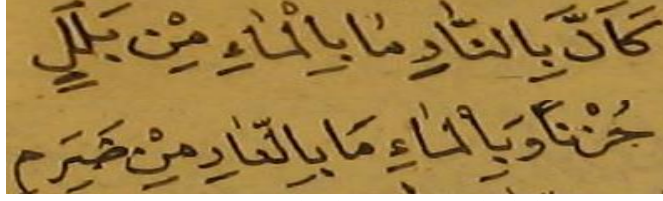 كَاَنَّ بِالنَّارِ مَا بِالْمَاءِ مِنْ بَلَلٍ
حُزْنًا وَبِالْمَاءِ مَا بِالنَّارِ مِنْ ضَرَمِ